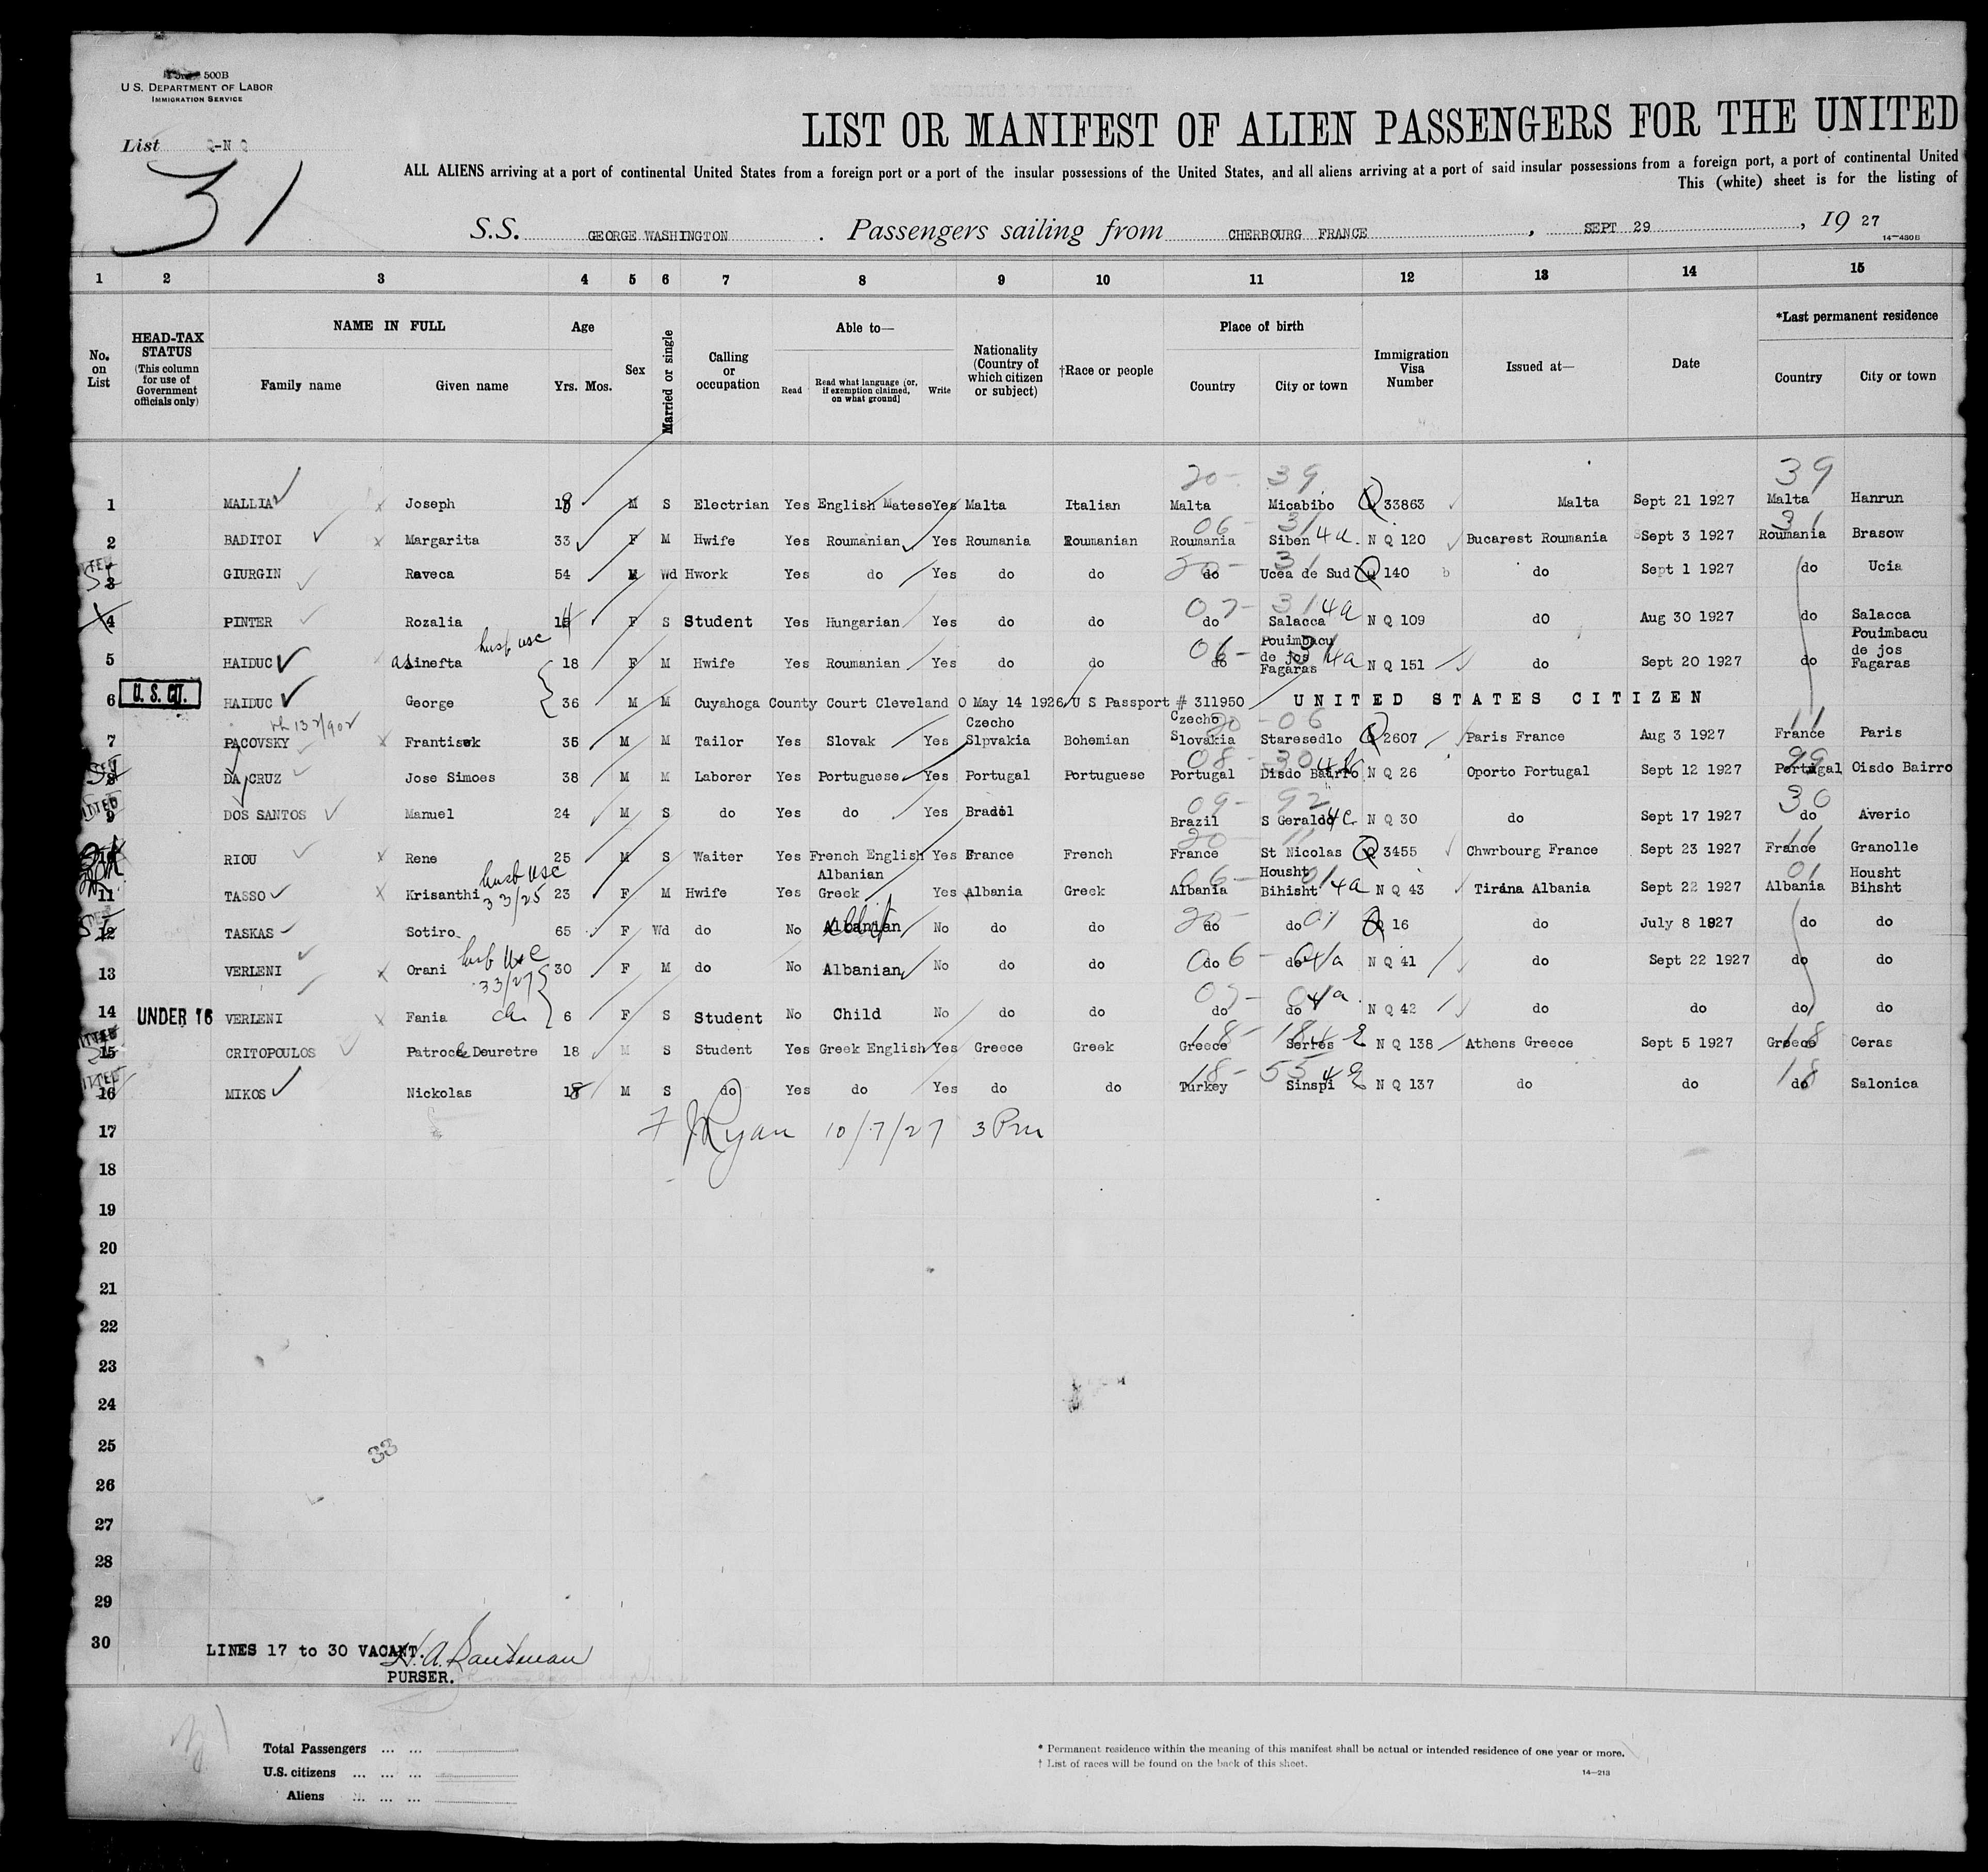 Form 500B
U.S. DEPARTMENT OF LABOR
IMMIGRATION SERVICE
List Q-N Q
31
LIST OR MANIFEST OF ALIEN PASSENGERS FOR THE UNITED
ALL ALIENS arriving at a port of continental United States from a foreign port or a port of the insular possessions of the United States, and all aliens arriving at a port of said insular possessions from a foreign port, a port of continental United
This (white) sheet is for the listing of
S.S. GEORGE WASHINGTON . Passengers sailing from CHERBOURG FRANCE , SEPT 29 , 19 27
14-430B
1 2 3 4 5 6 7 8 9 10 11 12 13 14 15
No. on List
HEAD-TAX STATUS (This column for use of Government officials only)
NAME IN FULL
Family name Given name
Age
Yrs. Mos.
Sex
Married or single
Calling or occupation
Able to—
Read
Read what language [or, if exemption claimed, on what ground]
Write
Nationality (Country of which citizen or subject)
†Race or people
Place of birth
Country City or town
Immigration Visa Number
Issued at—
Date
*Last permanent residence
Country City or town
20- 39 39
1 MALLIA Joseph 18 M S Electrian Yes English Matese Yes Malta Italian Malta Micabibo Q 33863 Malta Sept 21 1927 Malta Hanrun
06- 31 31
2 BADITOI Margarita 33 F M Hwife Yes Roumanian Yes Roumania Roumanian Roumania Siben 4a N Q 120 Bucarest Roumania Sept 3 1927 Roumania Brasow
20- 31
3 GIURGIN Raveca 54 M Wd Hwork Yes do Yes do do do Ucea de Sud Q 140 do Sept 1 1927 do Ucia
07- 31 4a
4 PINTER Rozalia 14 F S Student Yes Hungarian Yes do do do Salacca N Q 109 dO Aug 30 1927 do Salacca
husb usc
06- 31 4a
5 HAIDUC asinefta 18 F M Hwife Yes Roumanian Yes do do do Pouimbacu de jos Fagaras N Q 151 do Sept 20 1927 do Pouimbacu de jos Fagaras
6 U. S. CIT. HAIDUC George 36 M M Cuyahoga County Court Cleveland O May 14 1926 U S Passport # 311950 UNITED STATES CITIZEN
20-06 11
7 PACOVSKY Frantisek 36 M M Tailor Yes Slovak Yes Czecho Slpvakia Bohemian Czecho Slovakia Staresedlo Q 2607 Paris France Aug 3 1927 France Paris
08- 30 99
8 DA CRUZ Jose Simoes 38 M M Laborer Yes Portuguese Yes Portugal Portuguese Portugal Disdo Bairro N Q 26 Oporto Portugal Sept 12 1927 Portugal Oisdo Bairro
09- 92 30
9 DOS SANTOS Manuel 24 M S do Yes do Yes Brazil Brazil S Geraldo 4c N Q 30 do Sept 17 1927 do Averio
20- 11 11
RIOU Rene 25 M S Waiter Yes French English Yes France French France St Nicolas Q 3455 Chwrbourg France Sept 23 1927 France Granolle
husb usc
33/25
06- 01 01
11 TASSO Krisanthi 23 F M Hwife Yes Albanian Greek Yes Albania Greek Albania Housht Bihisht 4a N Q 43 Tirana Albania Sept 22 1927 Albania Housht Bihsht
20- 01
12 TASKAS Sotiro 65 F Wd do No Albanian No do do do do Q 16 do July 8 1927 do do
husb USC
33/27
06- 04a
13 VERLENI Orani 30 F M do No Albanian No do do do do N Q 41 do Sept 22 1927 do do
14 UNDER 16 VERLENI Fania ch 6 F S Student No Child No do do do do N Q 42 do do do do
18- 18 18
15 CRITOPOULOS Patrocle Deuretre 18 M S Student Yes Greek English Yes Greece Greek Greece Serres N Q 138 Athens Greece Sept 5 1927 Greece Ceras
18- 55 18
16 MIKOS Nickolas 18 M S do Yes do Yes do do Turkey Sinspi N Q 137 do do do Salonica
17 F J Ryan 10/7/27 3 Pm
18
19
20
21
22
23
24
25
33
26
27
28
29
30
LINES 17 to 30 VACANT.
PURSER.
Total Passengers ... ...
U.S. citizens ... ... ...
Aliens ... ... ...
* Permanent residence within the meaning of this manifest shall be actual or intended residence of one year or more.
† List of races will be found on the back of this sheet.
14-213